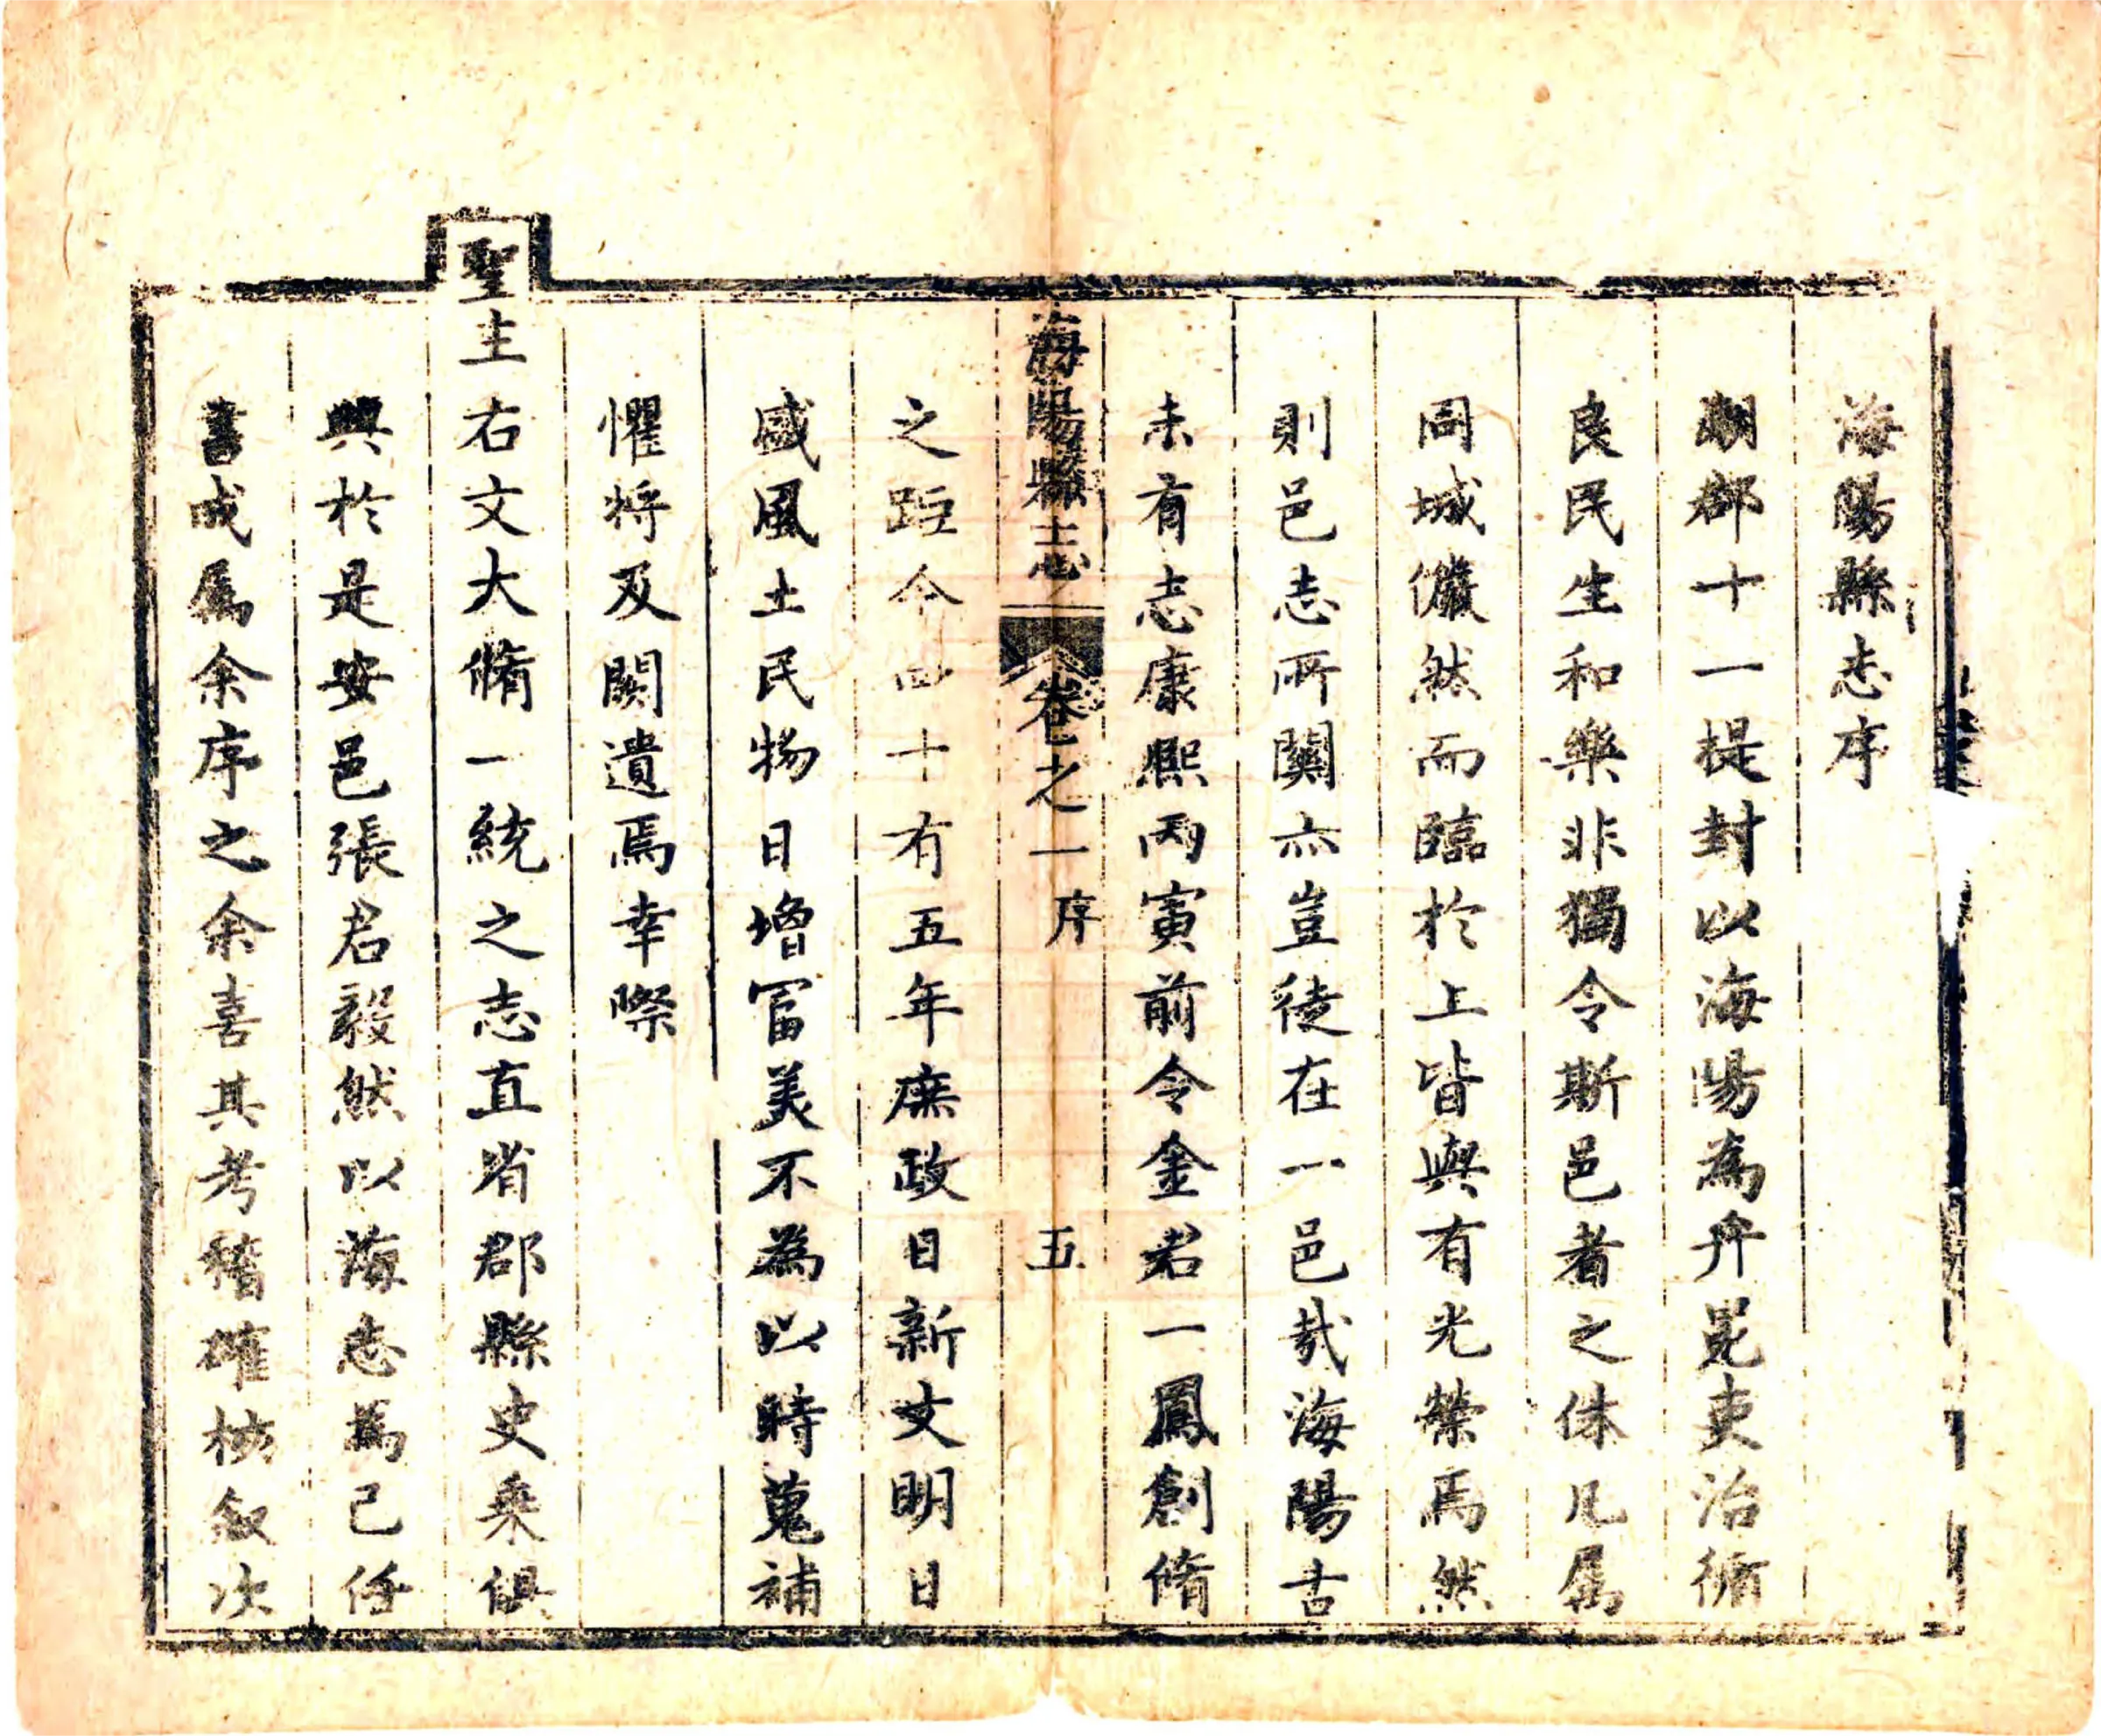 海陽縣志序
潮郡十一提封以海陽為弁冕吏治循
良民生和樂非獨令斯邑者之休凡属
同城儼然而臨於上皆與有光榮焉然
則邑志所關亦豈徒在一邑㢤海陽古
未有志康熙丙寅前令金君一鳳創脩
海陽縣志 卷之一 序 五
之距今四十有五年庶政日新文明日
盛風土民物日增冨美不為以時蒐補
懼將及闕遺焉幸際
聖主右文大脩一統之志直省郡縣史乗俱
興於是安邑張君毅然以海志為己任
書成属余序之余喜其考稽確核叙次